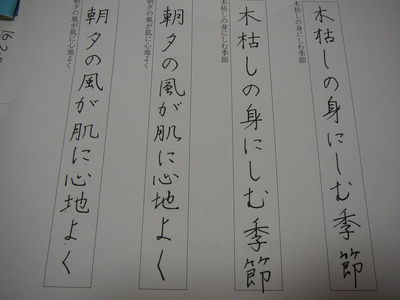 木枯しの身にしむ季節
木枯しの身にしむ季節
木枯しの身にしむ季節
木枯しの身にしむ季節
朝夕の風が肌に心地よく
朝夕の風が肌に心地よく
朝夕の風が肌に心地よく
朝夕の風が肌に心地よく